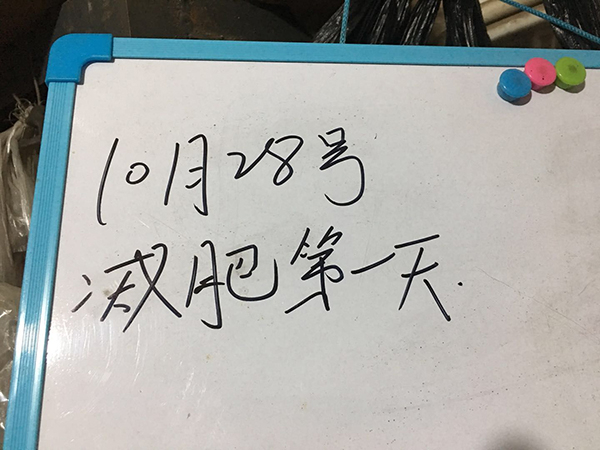 10月28号
减肥第一天.